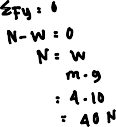 ΣFy = 0
N - W = 0
N = W
m.g
= 4.10
= 40 N